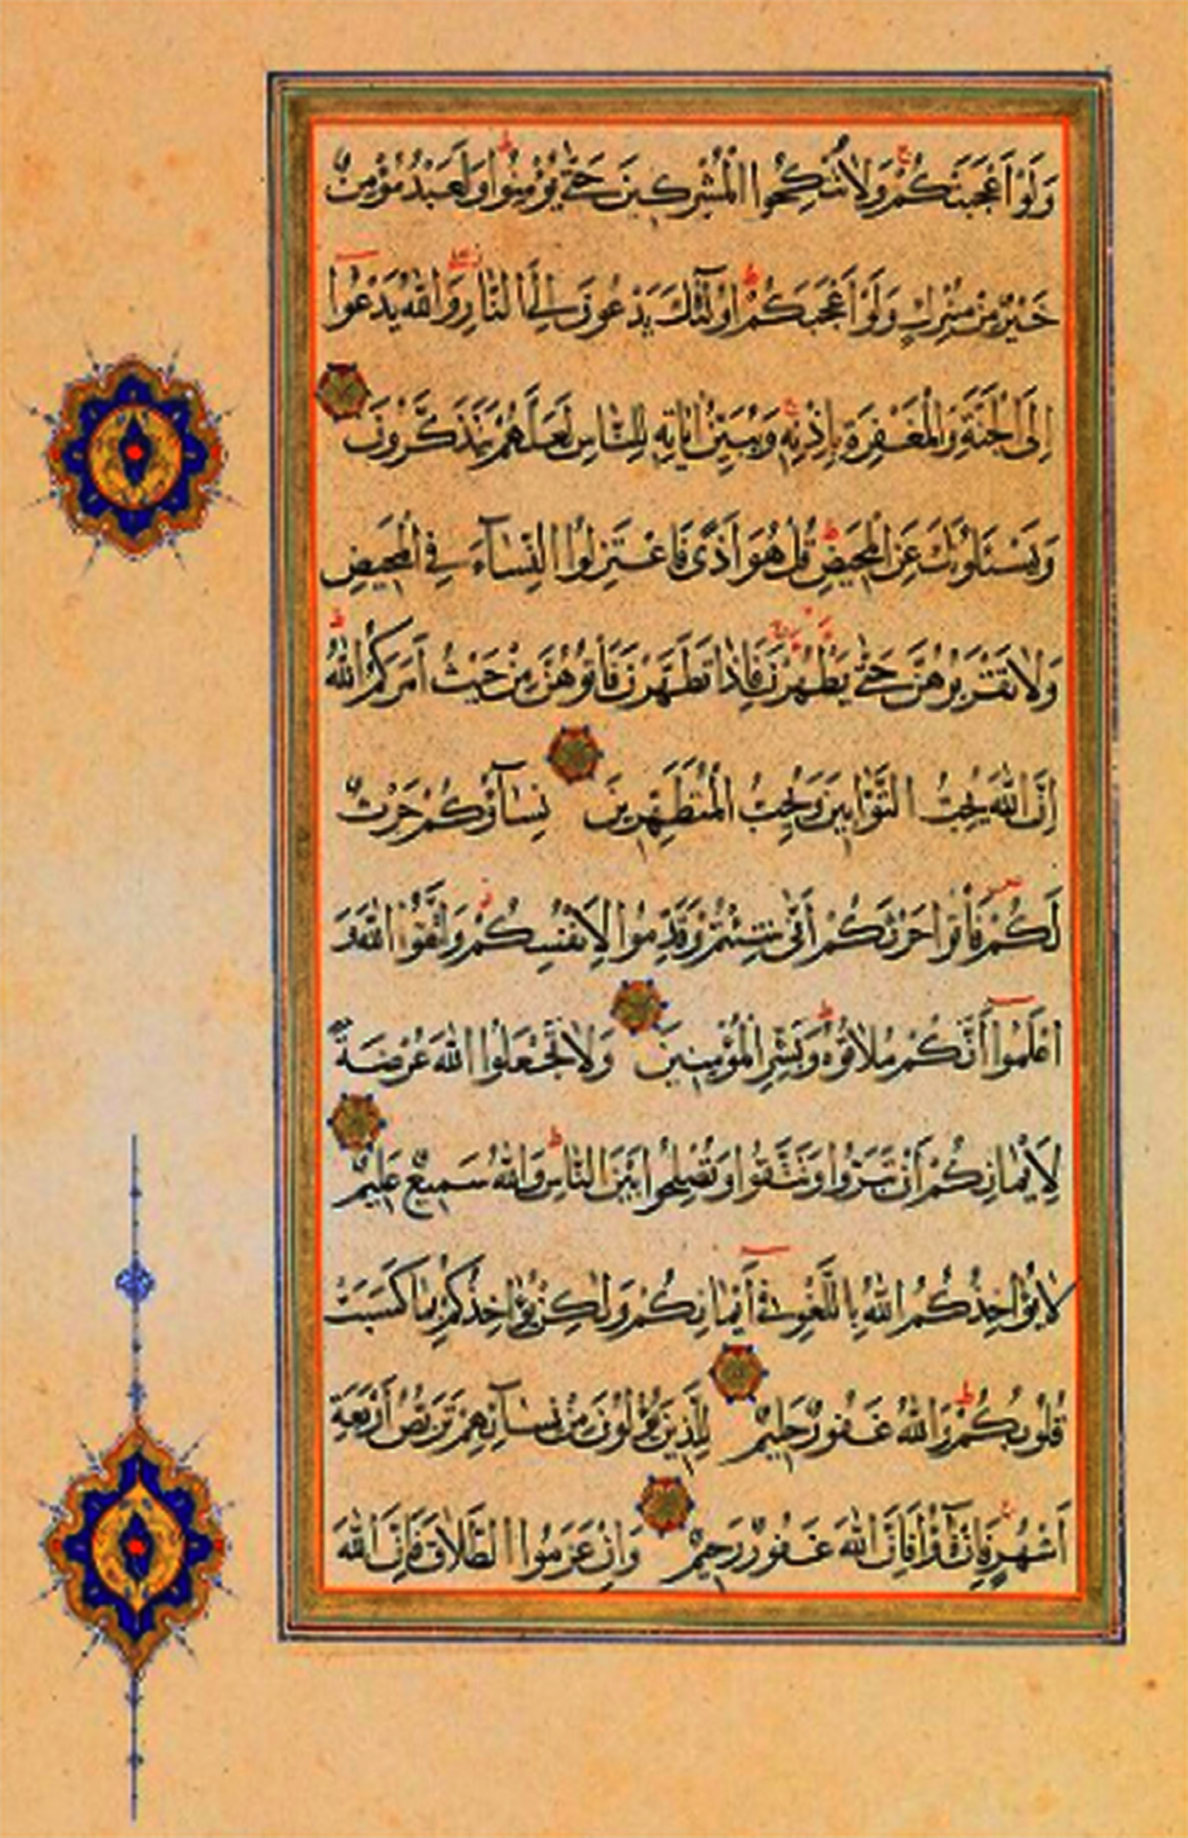 وَلَوْ أَعْجَبَتْكُمْ وَلَا تُنْكِحُوا الْمُشْرِكِينَ حَتَّى يُؤْمِنُوا وَلَعَبْدٌ مُؤْمِنٌ
خَيْرٌ مِنْ مُشْرِكٍ وَلَوْ أَعْجَبَكُمْ أُولَٰئِكَ يَدْعُونَ إِلَى النَّارِ وَاللَّهُ يَدْعُوا
إِلَى الْجَنَّةِ وَالْمَغْفِرَةِ بِإِذْنِهِ وَيُبَيِّنُ آيَاتِهِ لِلنَّاسِ لَعَلَّهُمْ يَتَذَكَّرُونَ
وَيَسْئَلُونَكَ عَنِ الْمَحِيضِ قُلْ هُوَ أَذًى فَاعْتَزِلُوا النِّسَآءَ فِي الْمَحِيضِ
وَلَا تَقْرَبُوهُنَّ حَتَّى يَطْهُرْنَ فَإِذَا تَطَهَّرْنَ فَأْتُوهُنَّ مِنْ حَيْثُ أَمَرَكُمُ اللَّهُ
إِنَّ اللَّهَ يُحِبُّ التَّوَّابِينَ وَيُحِبُّ الْمُتَطَهِّرِينَ نِسَآؤُكُمْ حَرْثٌ
لَكُمْ فَأْتُوا حَرْثَكُمْ أَنَّى شِئْتُمْ وَقَدِّمُوا لِأَنْفُسِكُمْ وَاتَّقُوا اللَّهَ وَ
اعْلَمُوا أَنَّكُمْ مُلَاقُوهُ وَبَشِّرِ الْمُؤْمِنِينَ وَلَا تَجْعَلُوا اللَّهَ عُرْضَةً
لِأَيْمَانِكُمْ أَنْ تَبَرُّوا وَتَتَّقُوا وَتُصْلِحُوا بَيْنَ النَّاسِ وَاللَّهُ سَمِيعٌ عَلِيمٌ
لَا يُؤَاخِذُكُمُ اللَّهُ بِاللَّغْوِ فِي أَيْمَانِكُمْ وَلَٰكِنْ يُؤَاخِذُكُمْ بِمَا كَسَبَتْ
قُلُوبُكُمْ وَاللَّهُ غَفُورٌ حَلِيمٌ لِلَّذِينَ يُؤْلُونَ مِنْ نِسَآئِهِمْ تَرَبُّصُ أَرْبَعَةِ
أَشْهُرٍ فَإِنْ فَآؤُا فَإِنَّ اللَّهَ غَفُورٌ رَحِيمٌ وَإِنْ عَزَمُوا الطَّلَاقَ فَإِنَّ اللَّهَ